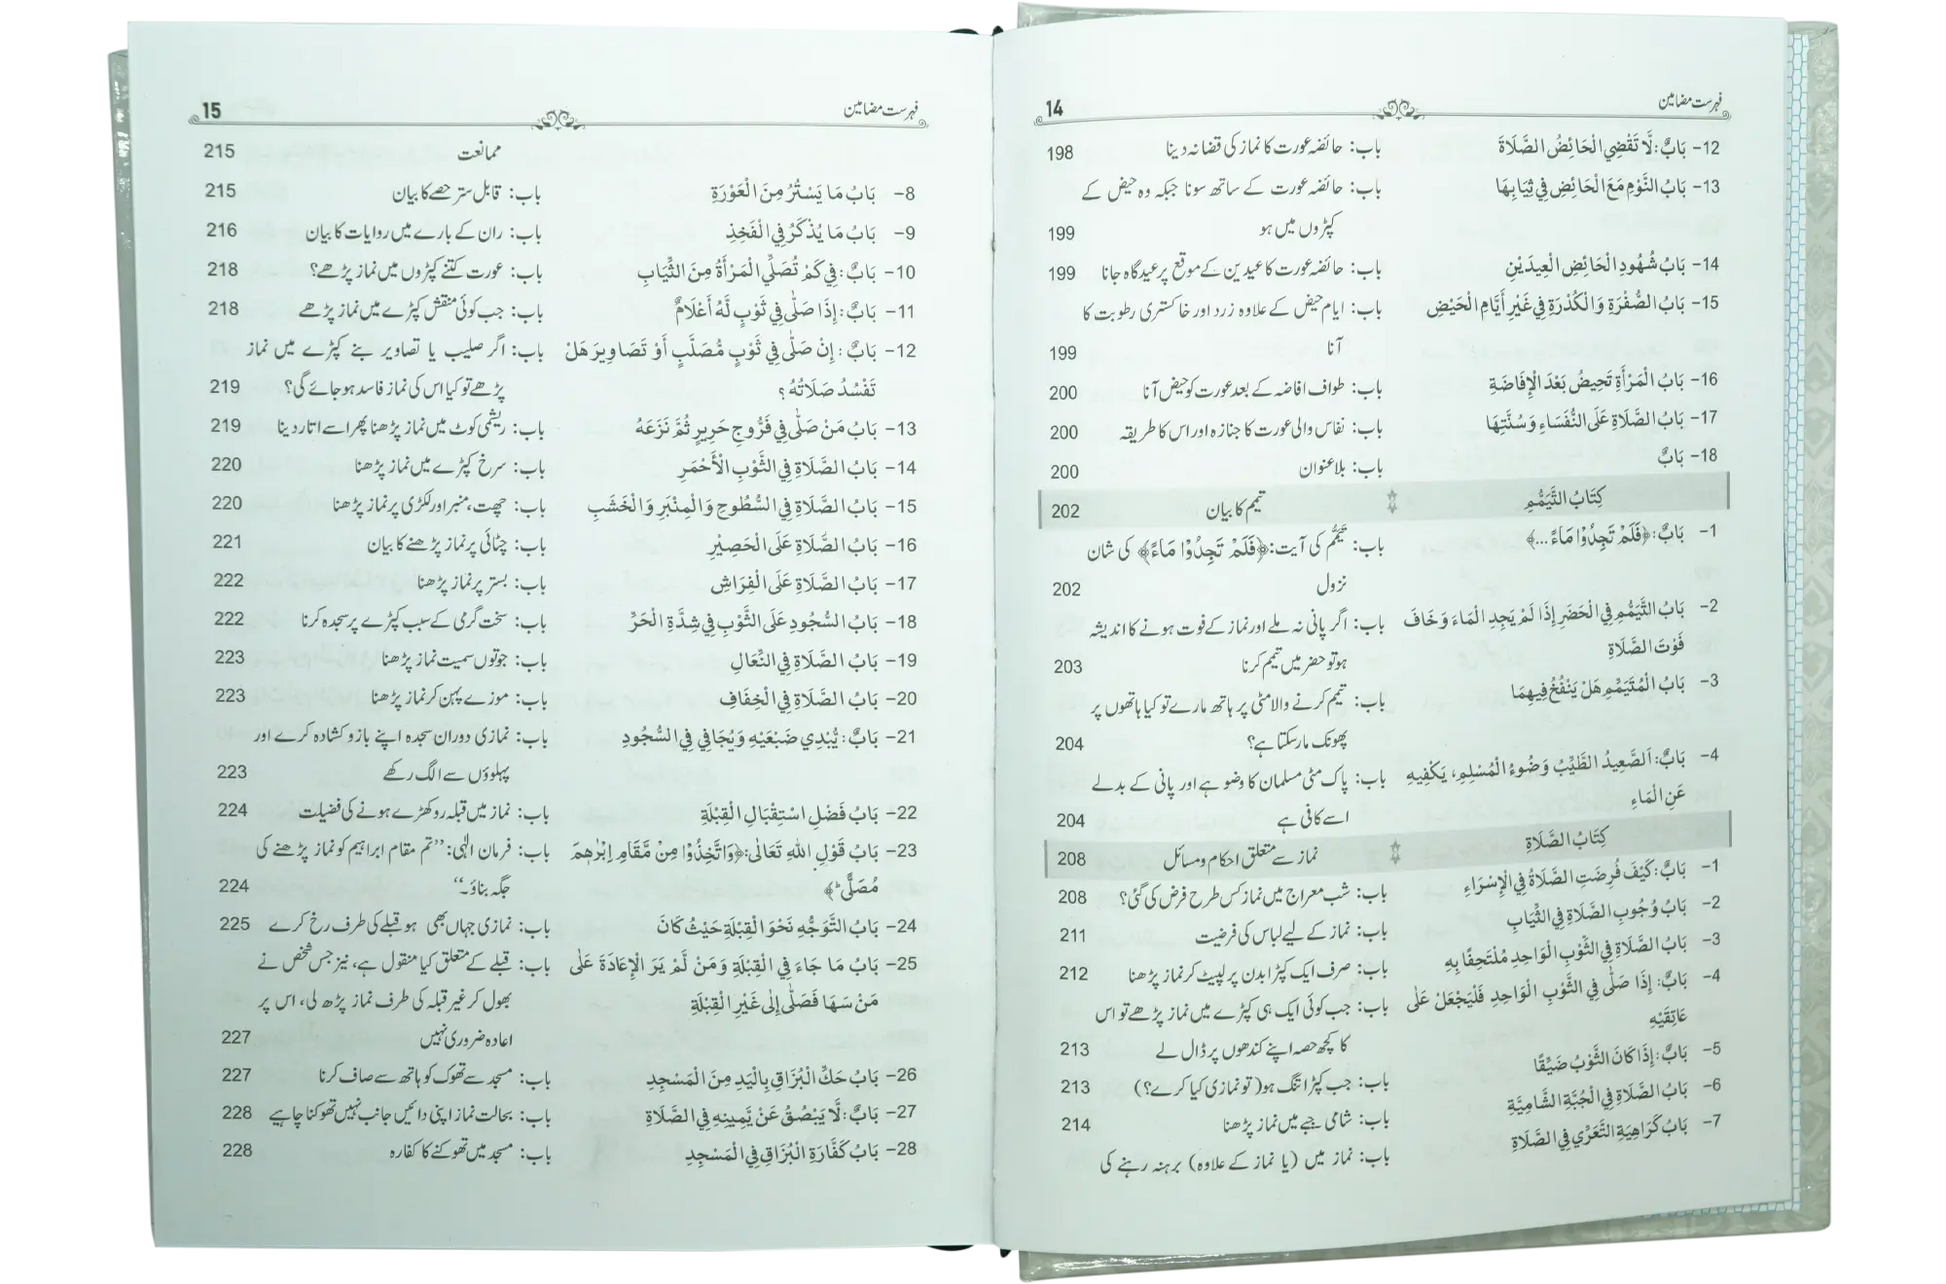 فہرست مضامین 14
12- بَابٌ: لَّا تَقْضِي الْحَائِضُ الصَّلَاةَ باب: حائضہ عورت کا نماز کی قضا نہ دینا 198
13- بَابُ النَّوْمِ مَعَ الْحَائِضِ فِي ثِيَابِهَا باب: حائضہ عورت کے ساتھ سونا جبکہ وہ حیض کے
کپڑوں میں ہو 199
14- بَابُ شُهُودِ الْحَائِضِ الْعِيدَيْنِ باب: حائضہ عورت کا عیدین کے موقع پر عیدگاہ جانا 199
15- بَابُ الصُّفْرَةِ وَالْكُدْرَةِ فِي غَيْرِ أَيَّامِ الْحَيْضِ باب: ایام حیض کے علاوہ زرد اور خاکستری رطوبت کا
آنا 199
16- بَابُ الْمَرْأَةِ تَحِيضُ بَعْدَ الْإِفَاضَةِ باب: طواف افاضہ کے بعد عورت کو حیض آنا 200
17- بَابُ الصَّلَاةِ عَلَى النُّفَسَاءِ وَسُنَّتِهَا باب: نفاس والی عورت کا جنازہ اور اس کا طریقہ 200
18- بَابٌ باب: بلاعنوان 200
كِتَابُ التَّيَمُّمِ تیمم کا بیان 202
1- بَابٌ: ﴿فَلَمْ تَجِدُوْا مَاءً ...﴾ باب: تیمّم کی آیت: ﴿فَلَمْ تَجِدُوْا مَاءً﴾ کی شان
نزول 202
2- بَابُ التَّيَمُّمِ فِي الْحَضَرِ إِذَا لَمْ يَجِدِ الْمَاءَ وَخَافَ باب: اگر پانی نہ ملے اور نماز کے فوت ہونے کا اندیشہ
فَوْتَ الصَّلَاةِ ہو تو حضر میں تیمم کرنا 203
3- بَابُ الْمُتَيَمِّمِ هَلْ يَنْفُخُ فِيهِمَا باب: تیمم کرنے والا مٹی پر ہاتھ مارے تو کیا ہاتھوں پر
پھونک مار سکتا ہے؟ 204
4- بَابٌ: اَلصَّعِيدُ الطَّيِّبُ وَضُوءُ الْمُسْلِمِ، يَكْفِيهِ باب: پاک مٹی مسلمان کا وضو ہے اور پانی کے بدلے
عَنِ الْمَاءِ اسے کافی ہے 204
كِتَابُ الصَّلَاةِ نماز سے متعلق احکام و مسائل 208
1- بَابٌ: كَيْفَ فُرِضَتِ الصَّلَاةُ فِي الْإِسْرَاءِ باب: شب معراج میں نماز کس طرح فرض کی گئی؟ 208
2- بَابُ وُجُوبِ الصَّلَاةِ فِي الثِّيَابِ باب: نماز کے لیے لباس کی فرضیت 211
3- بَابُ الصَّلَاةِ فِي الثَّوْبِ الْوَاحِدِ مُلْتَحِفًا بِهِ باب: صرف ایک کپڑا بدن پر لپیٹ کر نماز پڑھنا 212
4- بَابٌ: إِذَا صَلَّى فِي الثَّوْبِ الْوَاحِدِ فَلْيَجْعَلْ عَلٰى باب: جب کوئی ایک ہی کپڑے میں نماز پڑھے تو اس
عَاتِقَيْهِ کا کچھ حصہ اپنے کندھوں پر ڈال لے 213
5- بَابٌ: إِذَا كَانَ الثَّوْبُ ضَيِّقًا باب: جب کپڑا تنگ ہو (تو نمازی کیا کرے؟) 213
6- بَابُ الصَّلَاةِ فِي الْجُبَّةِ الشَّامِيَّةِ باب: شامی جبے میں نماز پڑھنا 214
7- بَابُ كَرَاهِيَةِ التَّعَرِّي فِي الصَّلَاةِ باب: نماز میں (یا نماز کے علاوہ) برہنہ رہنے کی
فہرست مضامین 15
ممانعت 215
8- بَابُ مَا يَسْتُرُ مِنَ الْعَوْرَةِ باب: قابل ستر حصے کا بیان 215
9- بَابُ مَا يُذْكَرُ فِي الْفَخِذِ باب: ران کے بارے میں روایات کا بیان 216
10- بَابٌ: فِي كَمْ تُصَلِّي الْمَرْأَةُ مِنَ الثِّيَابِ باب: عورت کتنے کپڑوں میں نماز پڑھے؟ 218
11- بَابٌ: إِذَا صَلّٰى فِي ثَوْبٍ لَّهُ أَعْلَامٌ باب: جب کوئی منقش کپڑے میں نماز پڑھے 218
12- بَابٌ: إِنْ صَلّٰى فِي ثَوْبٍ مُّصَلَّبٍ أَوْ تَصَاوِيرَ هَلْ باب: اگر صلیب یا تصاویر بنے کپڑے میں نماز
تَفْسُدُ صَلَاتُهُ؟ پڑھے تو کیا اس کی نماز فاسد ہو جائے گی؟ 219
13- بَابُ مَنْ صَلّٰى فِي فَرُّوجِ حَرِيرٍ ثُمَّ نَزَعَهُ باب: ریشمی کوٹ میں نماز پڑھنا پھر اسے اتار دینا 219
14- بَابُ الصَّلَاةِ فِي الثَّوْبِ الْأَحْمَرِ باب: سرخ کپڑے میں نماز پڑھنا 220
15- بَابُ الصَّلَاةِ فِي السُّطُوحِ وَالْمِنْبَرِ وَالْخَشَبِ باب: چھت، منبر اور لکڑی پر نماز پڑھنا 220
16- بَابُ الصَّلَاةِ عَلَى الْحَصِيْرِ باب: چٹائی پر نماز پڑھنے کا بیان 221
17- بَابُ الصَّلَاةِ عَلَى الْفِرَاشِ باب: بستر پر نماز پڑھنا 222
18- بَابُ السُّجُودِ عَلَى الثَّوْبِ فِي شِدَّةِ الْحَرِّ باب: سخت گرمی کے سبب کپڑے پر سجدہ کرنا 222
19- بَابُ الصَّلَاةِ فِي النِّعَالِ باب: جوتوں سمیت نماز پڑھنا 223
20- بَابُ الصَّلَاةِ فِي الْخِفَافِ باب: موزے پہن کر نماز پڑھنا 223
21- بَابٌ: يُبْدِي ضَبْعَيْهِ وَيُجَافِي فِي السُّجُودِ باب: نمازی دوران سجدہ اپنے بازو کشادہ کرے اور
پہلوؤں سے الگ رکھے 223
22- بَابُ فَضْلِ اسْتِقْبَالِ الْقِبْلَةِ باب: نماز میں قبلہ رو کھڑے ہونے کی فضیلت 224
23- بَابُ قَوْلِ اللهِ تَعَالٰى: ﴿وَاتَّخِذُوْا مِنْ مَّقَامِ اِبْرٰهٖمَ باب: فرمان الٰہی: ’’تم مقام ابراہیم کو نماز پڑھنے کی
مُصَلًّى﴾ جگہ بناؤ۔‘‘ 224
24- بَابُ التَّوَجُّهِ نَحْوَ الْقِبْلَةِ حَيْثُ كَانَ باب: نمازی جہاں بھی ہو قبلے کی طرف رخ کرے 225
25- بَابُ مَا جَاءَ فِي الْقِبْلَةِ وَمَنْ لَّمْ يَرَ الْإِعَادَةَ عَلٰى باب: قبلے کے متعلق کیا منقول ہے، نیز جس شخص نے
مَنْ سَهَا فَصَلّٰى إِلٰى غَيْرِ الْقِبْلَةِ بھول کر غیر قبلہ کی طرف نماز پڑھ لی، اس پر
اعادہ ضروری نہیں 227
26- بَابُ حَكِّ الْبُزَاقِ بِالْيَدِ مِنَ الْمَسْجِدِ باب: مسجد سے تھوک کو ہاتھ سے صاف کرنا 227
27- بَابٌ: لَّا يَبْصُقْ عَنْ يَّمِينِهِ فِي الصَّلَاةِ باب: بحالت نماز اپنی دائیں جانب نہیں تھوکنا چاہیے 228
28- بَابُ كَفَّارَةِ الْبُزَاقِ فِي الْمَسْجِدِ باب: مسجد میں تھوکنے کا کفارہ 228